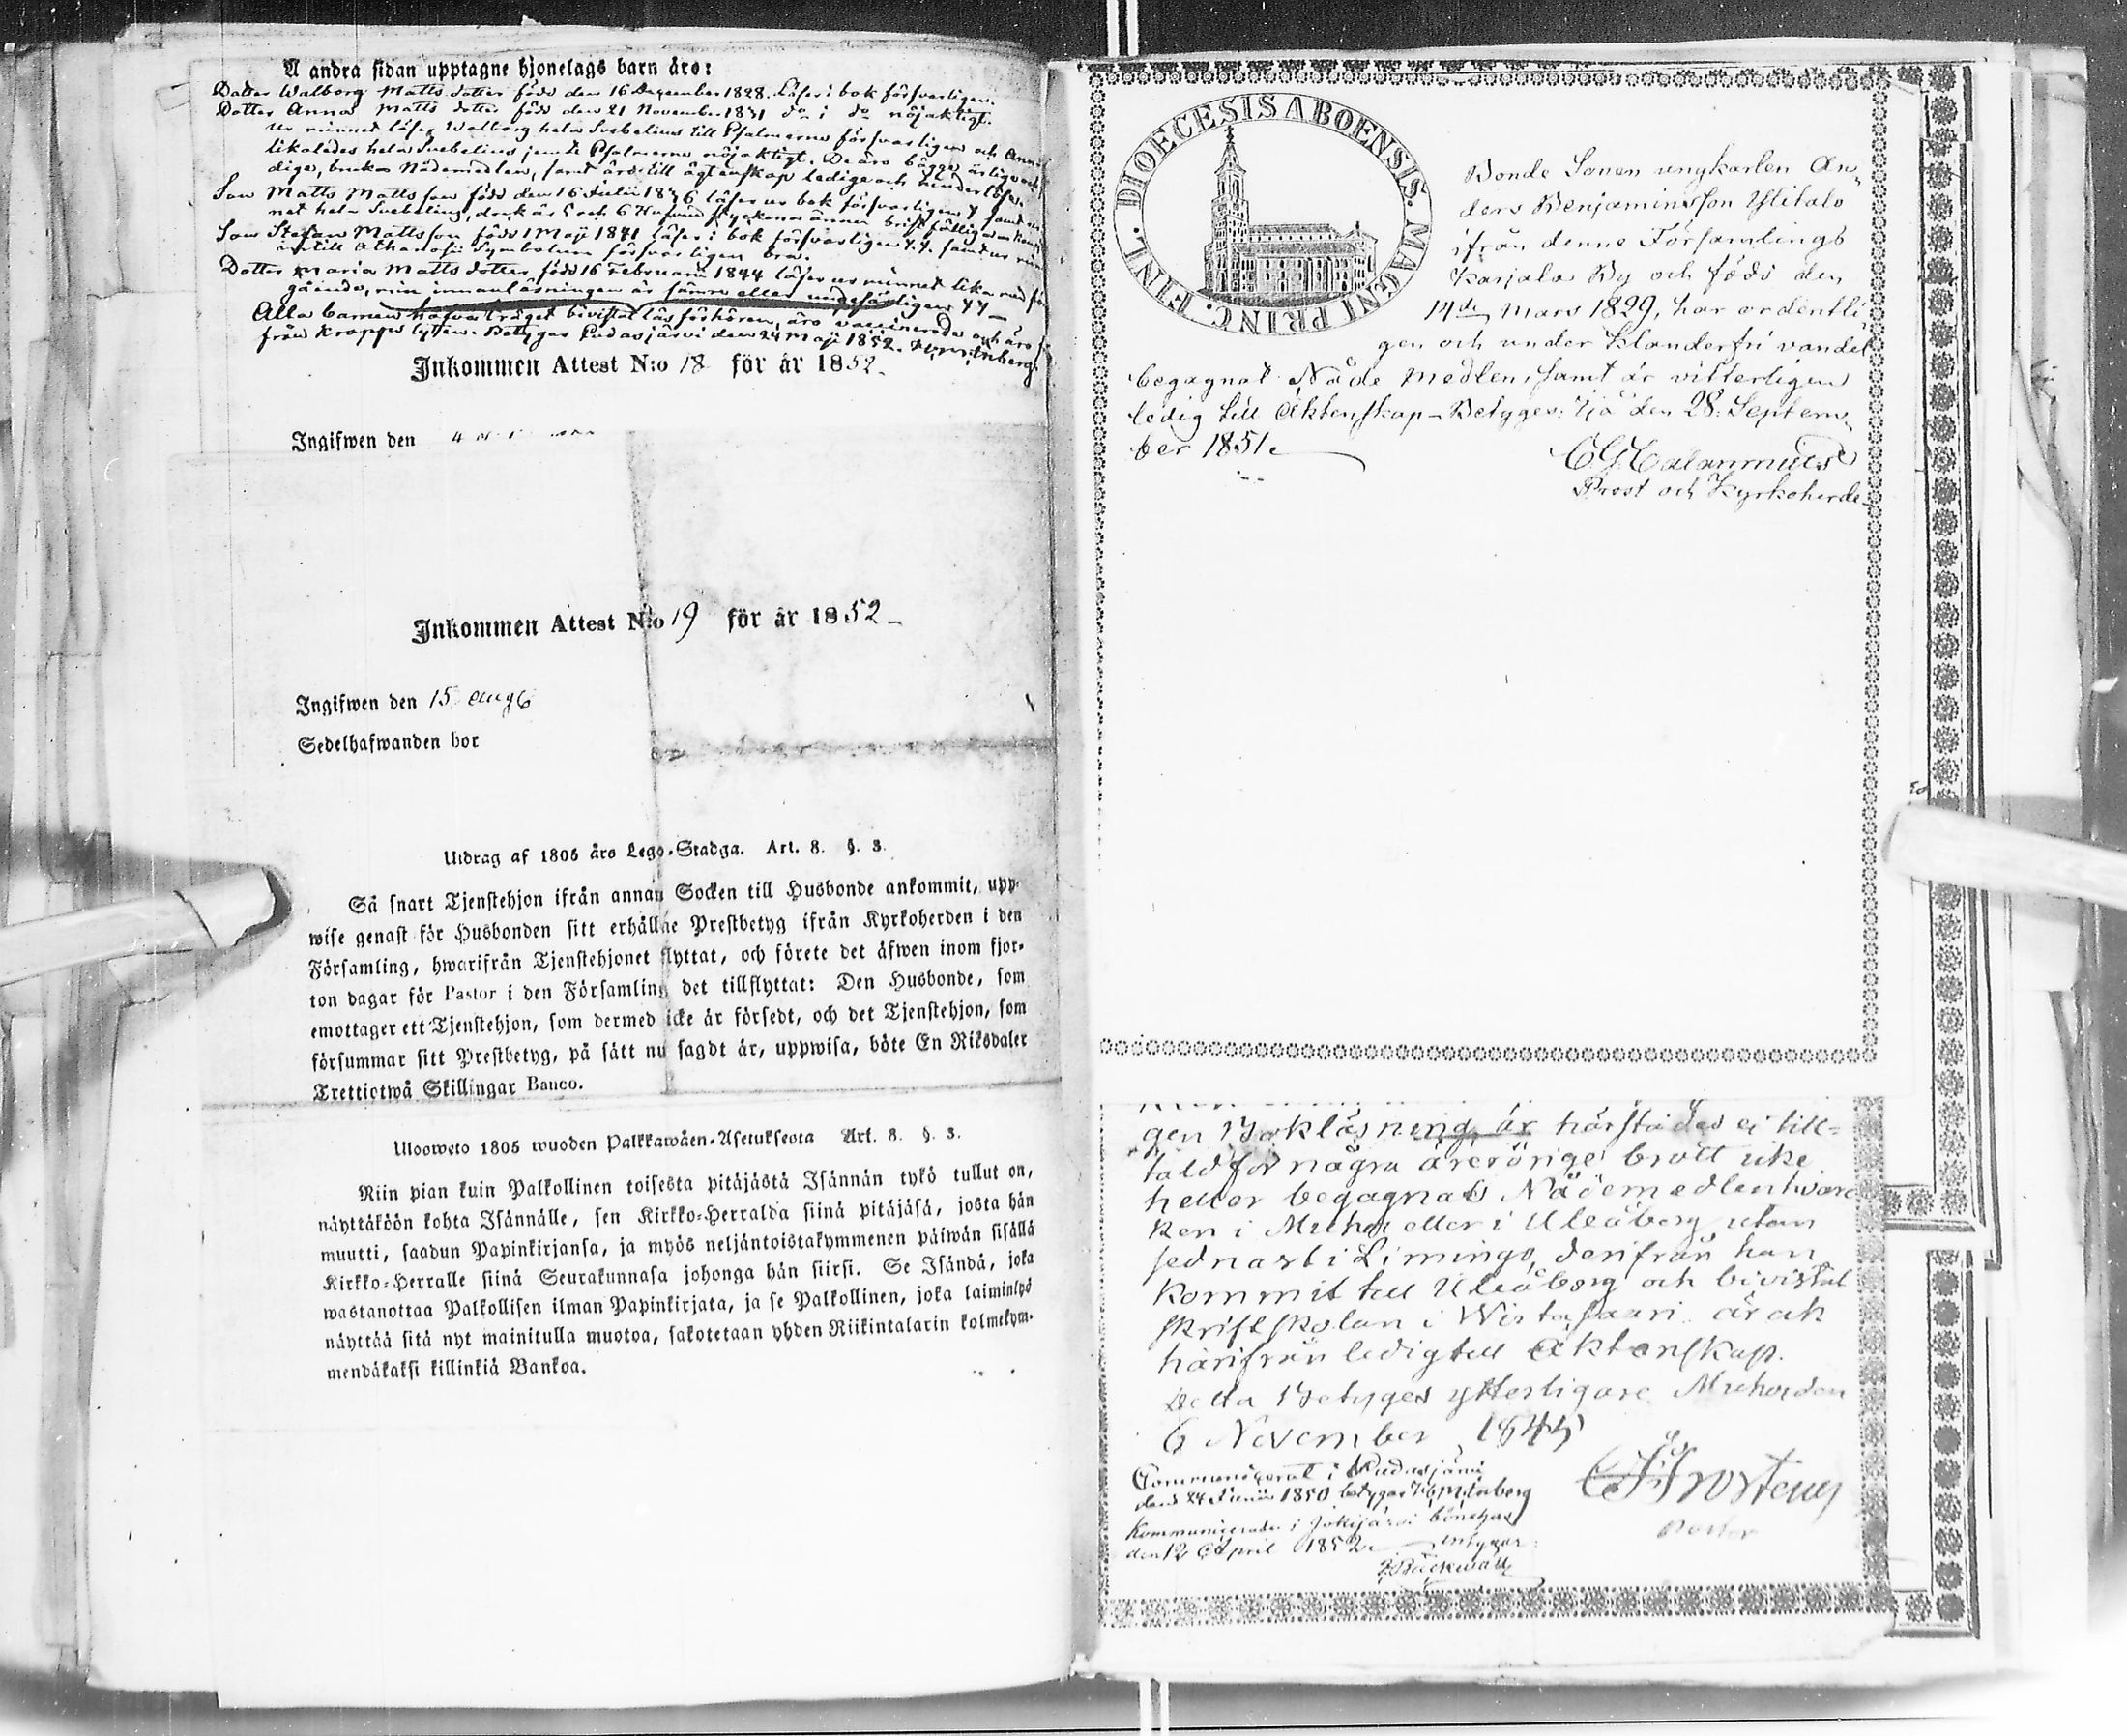 A andra sidan upptagne hjonelags barn äro:
Dotter Walborg Matts dotter född den 16 December 1828. Läser i bok försvarligen.
Dotter Anna Matts dotter född den 21 November 1831 do i do nöjaktigt.
ur minnet läser Walborg hela Svebelius till Psalmerna försvarligen och Anna
likaledes hela Svebelius jemte Psalmerna nöjaktigt. De äro bägge ärlige och
dige, bruka Nådemedlen, samt äro till ägtenskap ledige och hinderlöse.
Son Matts Mattsson född den 16 Julii 1836 läser ur bok försvarligen samt ur
net hela Svebelius, dock är 5 och 6 Hufvud styckena ännu
Son Stefan Mattsson född 1 Maji 1841 läser i bok försvarligen samt ur min
till Athanasii Symbolum försvarligen bra.
Dotter Maria Matts dotter född 16 Februarii 1844 läser ur minnet lika med
gående, men innanläsningen är sämre eller
Alla barnen hafva tråget bivistat läsförhören, äro vaccinerade och äro
från kropps lyten. Bettygar Pudasjärvi den 24 Maji 1852.
Inkommen Attest N:o 18 för år 1852.
Ingifwen den
Inkommen Attest N:o 19 för år 1852
Ingifwen den 15 Aug
Sedelhafwanden bor
Utdrag af 1805 års Lego-Stadga. Art. 8. §. 3.
Så snart Tjenstehjon ifrån annan Socken till Husbonde ankommit, upp-
wise genast för Husbonden sitt erhållne Prestbetyg ifrån Kyrkoherden i den
Församling, hwarifrån Tjenstehjonet flyttat, och förete det äfwen inom fjor-
ton dagar för Pastor i den Församling det tillflyttat: Den Husbonde, som
emottager ett Tjenstehjon, som dermed icke är försedt, och det Tjenstehjon, som
försummar sitt Prestbetyg, på sätt nu sagdt är, uppwisa, böte En Riksdaler
Trettiotwå Skillingar Banco.
Uloosweto 1805 wuoden Palkkawäen-Asetuksesta Art. 8. §. 3.
Niin pian kuin Palkollinen toisesta pitäjästä Isännän tykö tullut on,
näyttäköön kohta Isännälle, sen Kirkko-Herralda siinä pitäjäsä, josta hän
muutti, saadun Papinkirjansa, ja myös neljäntoistakymmenen päiwän sisällä
Kirkko-Herralle siinä Seurakunnasa johonga hän siirsi. Se Isändä, joka
wastanottaa Palkollisen ilman Papinkirjata, ja se Palkollinen, joka laiminlyö
näyttää sitä nyt mainitulla muotoa, sakotetaan yhden Riikintalarin kolmekym-
mendäkaksi killinkiä Bankoa.
DIOECESIS ABOENSIS. MAGNI PRINC. FINL.
Bonde Sonen ungkarlen An-
ders Benjaminsson Ylitalo
ifrån denne Församlings
Karjala By och född den
14de Mars 1829, har ordentli
gen och under Klanderfri vandel
begagnat Nåde Medlen, samt är vitterligen
ledig till Äktenskap. Betyges: Ijo den 28. Septem-
ber 1851.
C G Calamnius
Prost och Kyrkoherde
gen Bokläsning, är härstädes ej till-
tald för några ärerörige brott icke
heller begagnat Nådemedlen hvar
ken i Muhos eller i Uleåborg utan
sednast i Limingo, derifrån han
kommit till Uleåborg och bivistat
skriftskolan i Wirtasaari är ock
härifrån ledig till äktenskap.
Detta Betyges ytterligare Muhos den
6 November 1845
Frosterus
Pastor
Communicerat i Pudasjärvi
den 24 Junii 1850 betygar
Kommunicerade i Jokijärvi bönehus
den 12 April 1852 intygar
J. Bäckwall